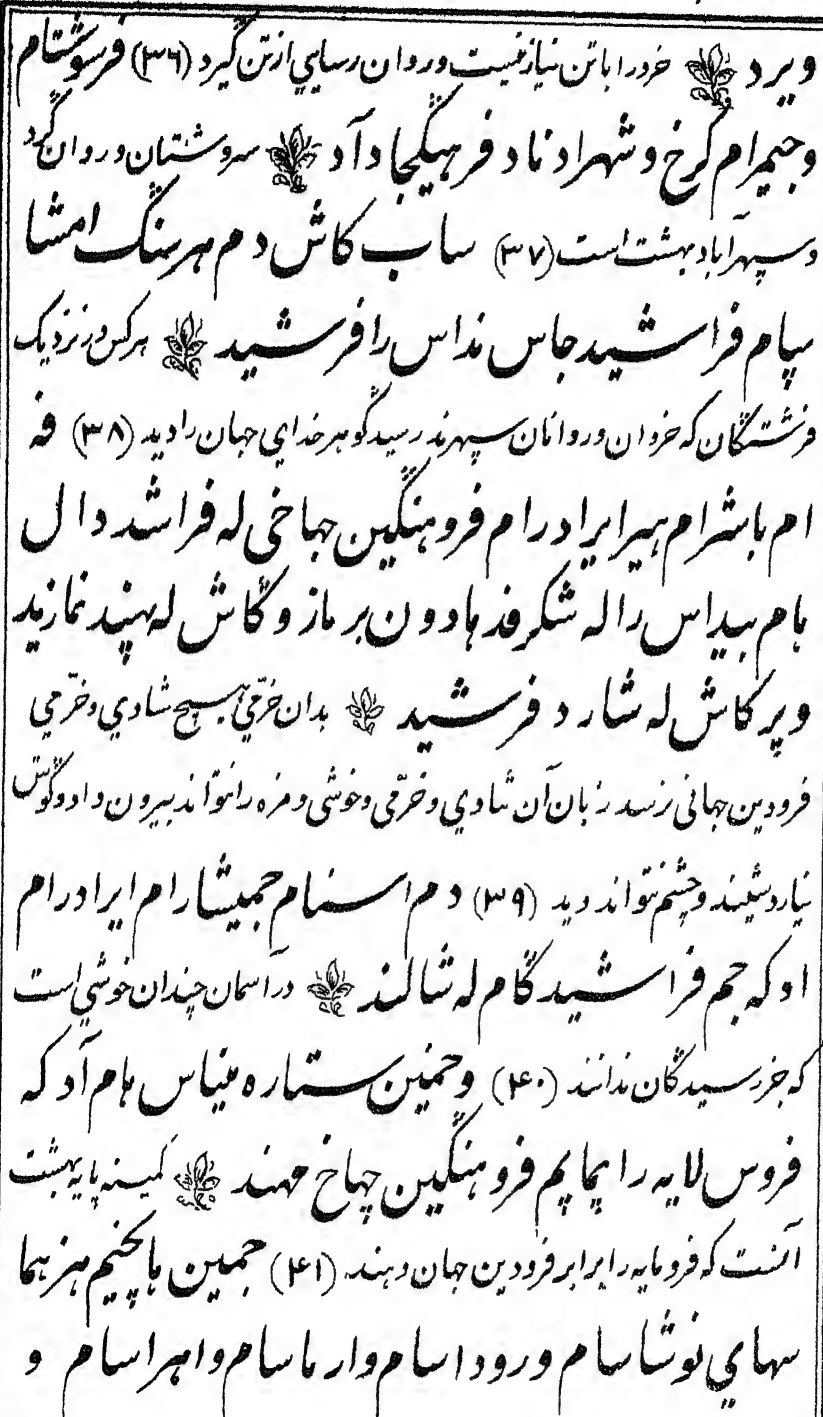 ویرد خرد را باتن نیاز نیست و روان رسایی از تن گیرد (۳۶) فرسوشتام
وجمیرام کرخ و شهراد ناد فرهیگجاد آد سروشستان و روان کرد
و سپهر آباد بهشت است (۳۷) ساب کاش دم هرسنگ امشا
سپام فراشید جاس نداس را فرشید هر کس در نزدیک
فرشتگان که خردان و روانان سپهرند رسید گوهر خدای جهان را دید (۳۸) فه
ام باشرام هیر ایرادرام فروهنگین جهاخی له فراشد دال
هام بیداس را له شکرفد هادون بر ماز و گاش له بپند نمازید
و پرکاش له شارد فرشید بدان خرّمی هیچ شادی و خرّمی
فرودین جهانی نرسد زبان آن شادی و خرّمی و خوشی و مزه را نتواند بیرون داد و گوش
نیارد شنید و چشم نتواند دید (۳۹) دم اسنام جمیشارام ایرادرام
او که جم فراشیدگام له شالند در آسمان چندان خوشی است
که جز رسیدگان ندانند (۴۰) و حنین ستاره میناس هام آد که
فروس لایه را پماپم فروهنگین جهاخ مهند کمینه پایه بهشت
آنست که فرومایه را برابر فرودین جهان دهند (۴۱) جمین هاپخیم هز هما
سهای نوشاسام و رود اسام و ارماسام و اهراسام و